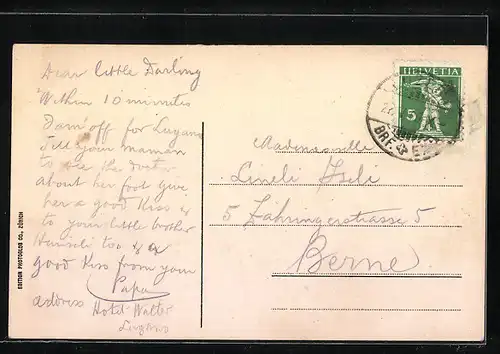 Dear little Darling
Within 10 minutes
I am off for Lugano
Tell your maman
to see the doctor
about her foot give
her a good Kiss &
to your little brother
Heinseli too & a
good Kiss from your
Papa
address Hotel Walter
Lugano
EDITION PHOTOGLOB CO., ZÜRICH
HELVETIA
5
Mademoiselle
Lineli Iseli
5 Zähringerstrasse 5
Berne